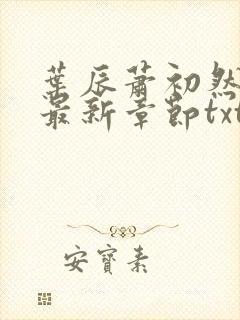 葉辰蕭初然
最新章節txt
安寶素